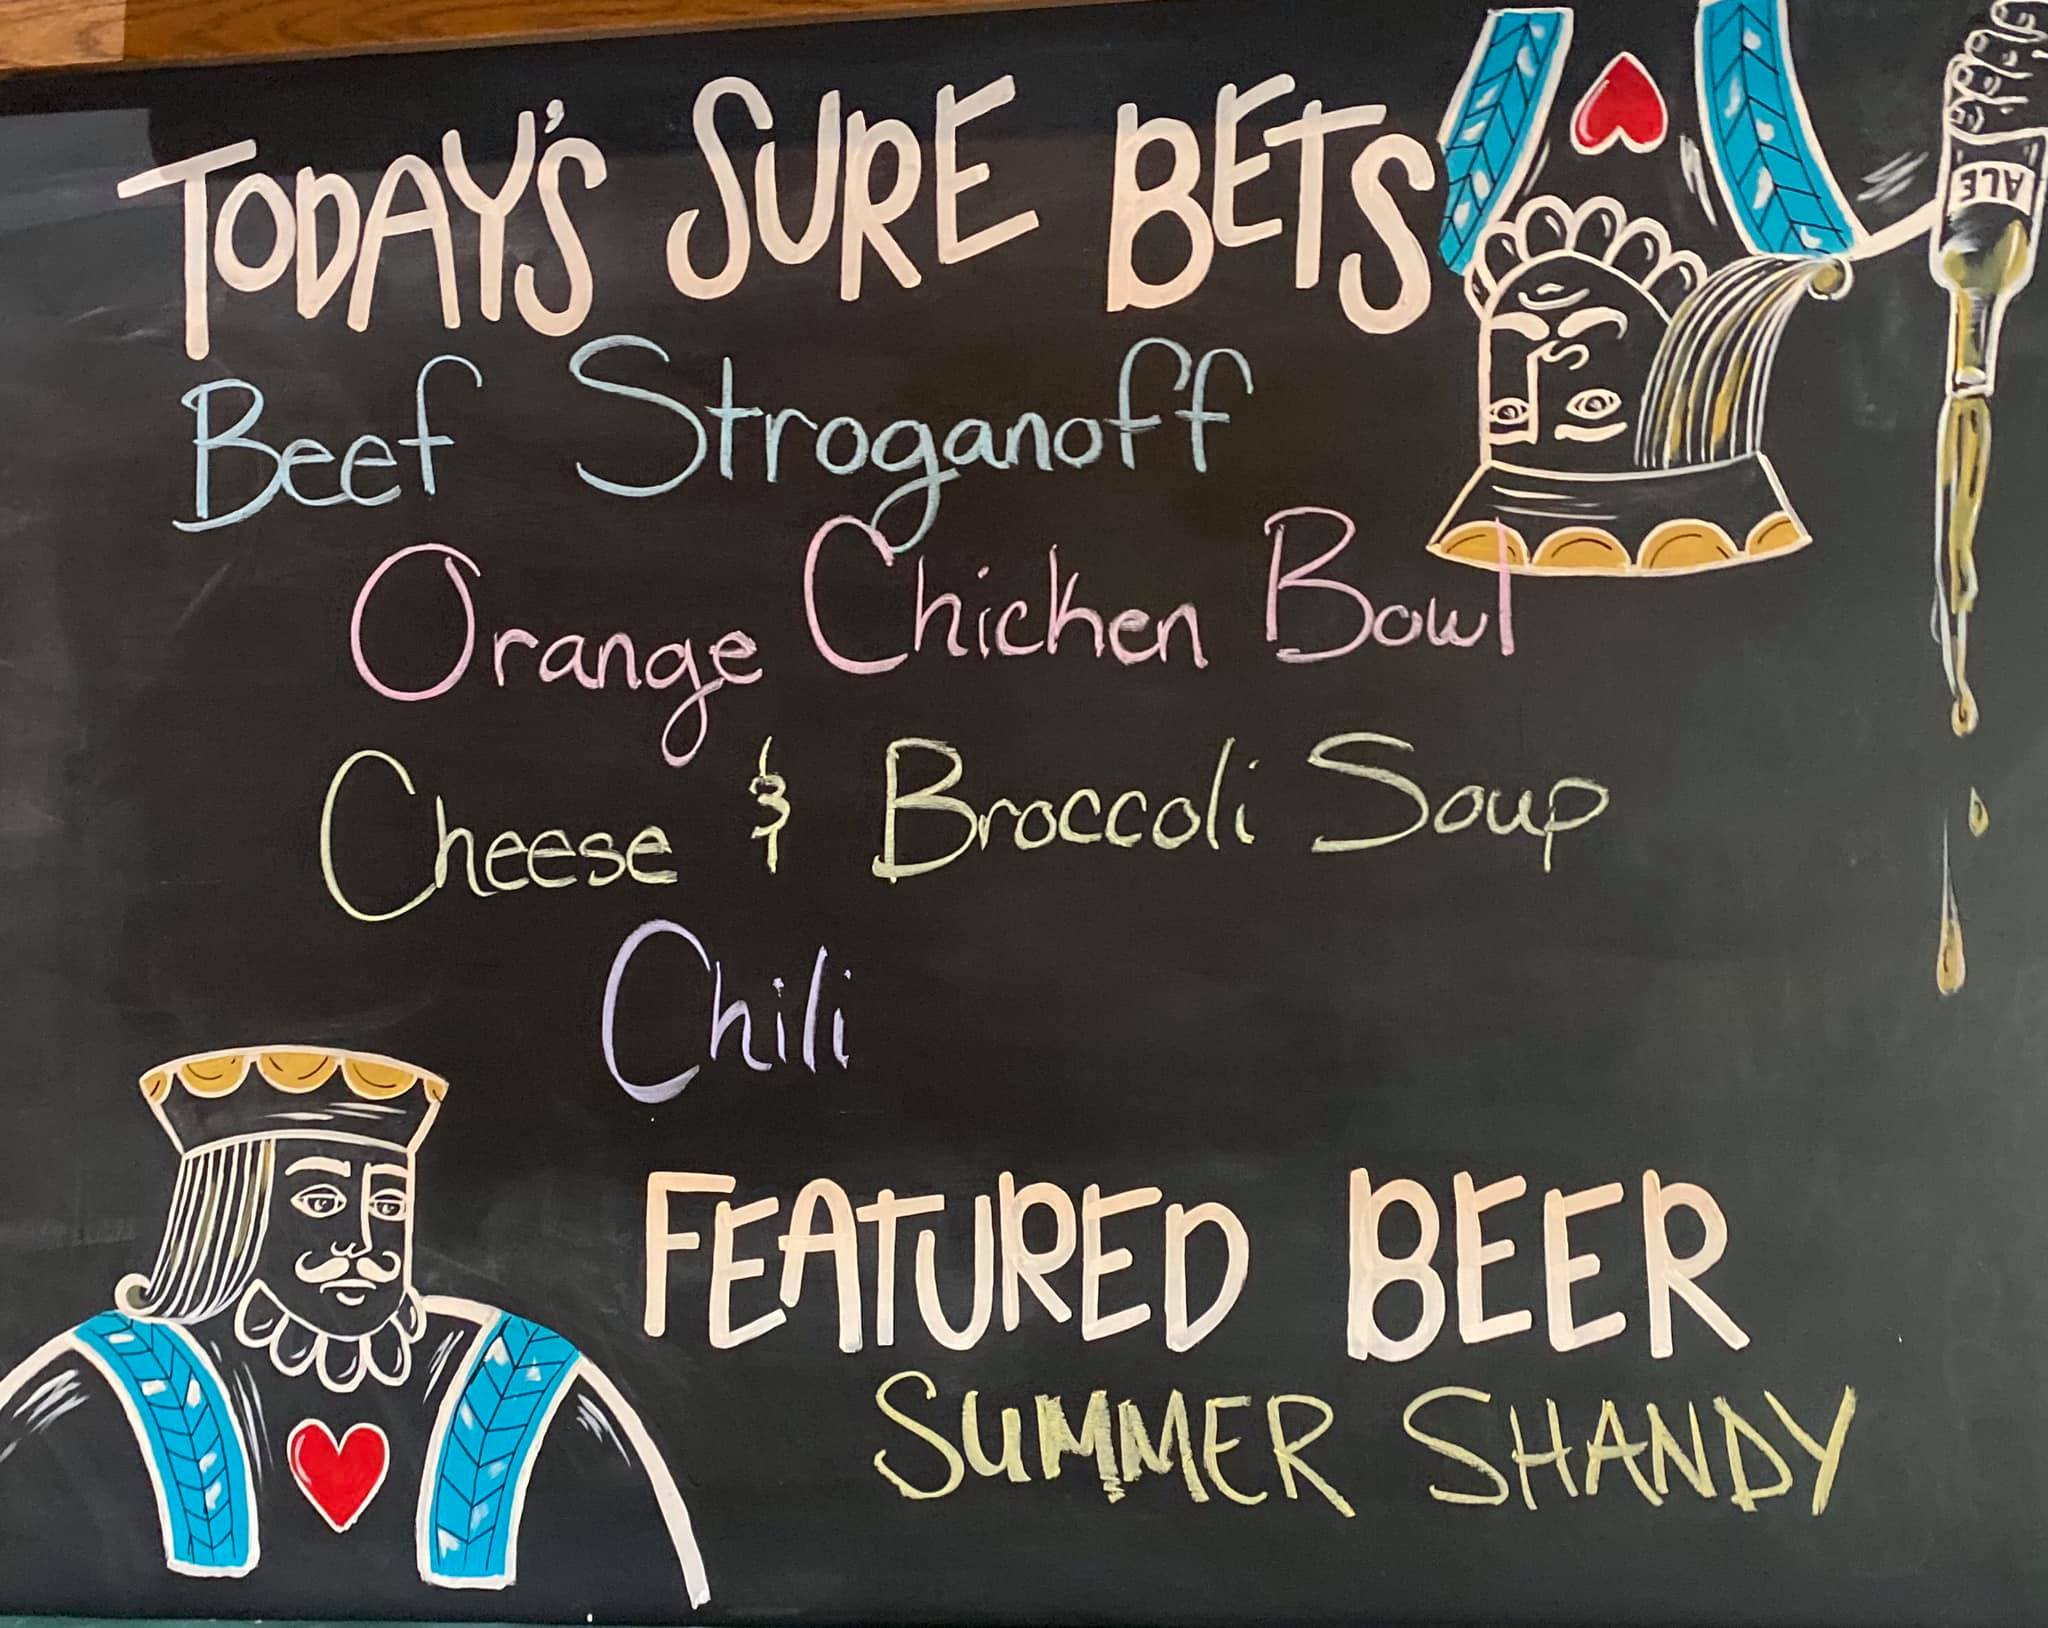 TODAY'S SURE BETS
ALE
Beef Stroganoff
Orange Chicken Bowl
Cheese & Broccoli Soup
Chili
FEATURED BEER
SUMMER SHANDY